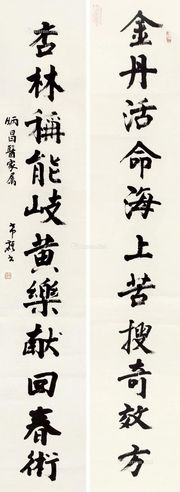 金丹活命海上苦搜奇效方
杏林稱能岐黄樂献回春術
炳昌醫家屬